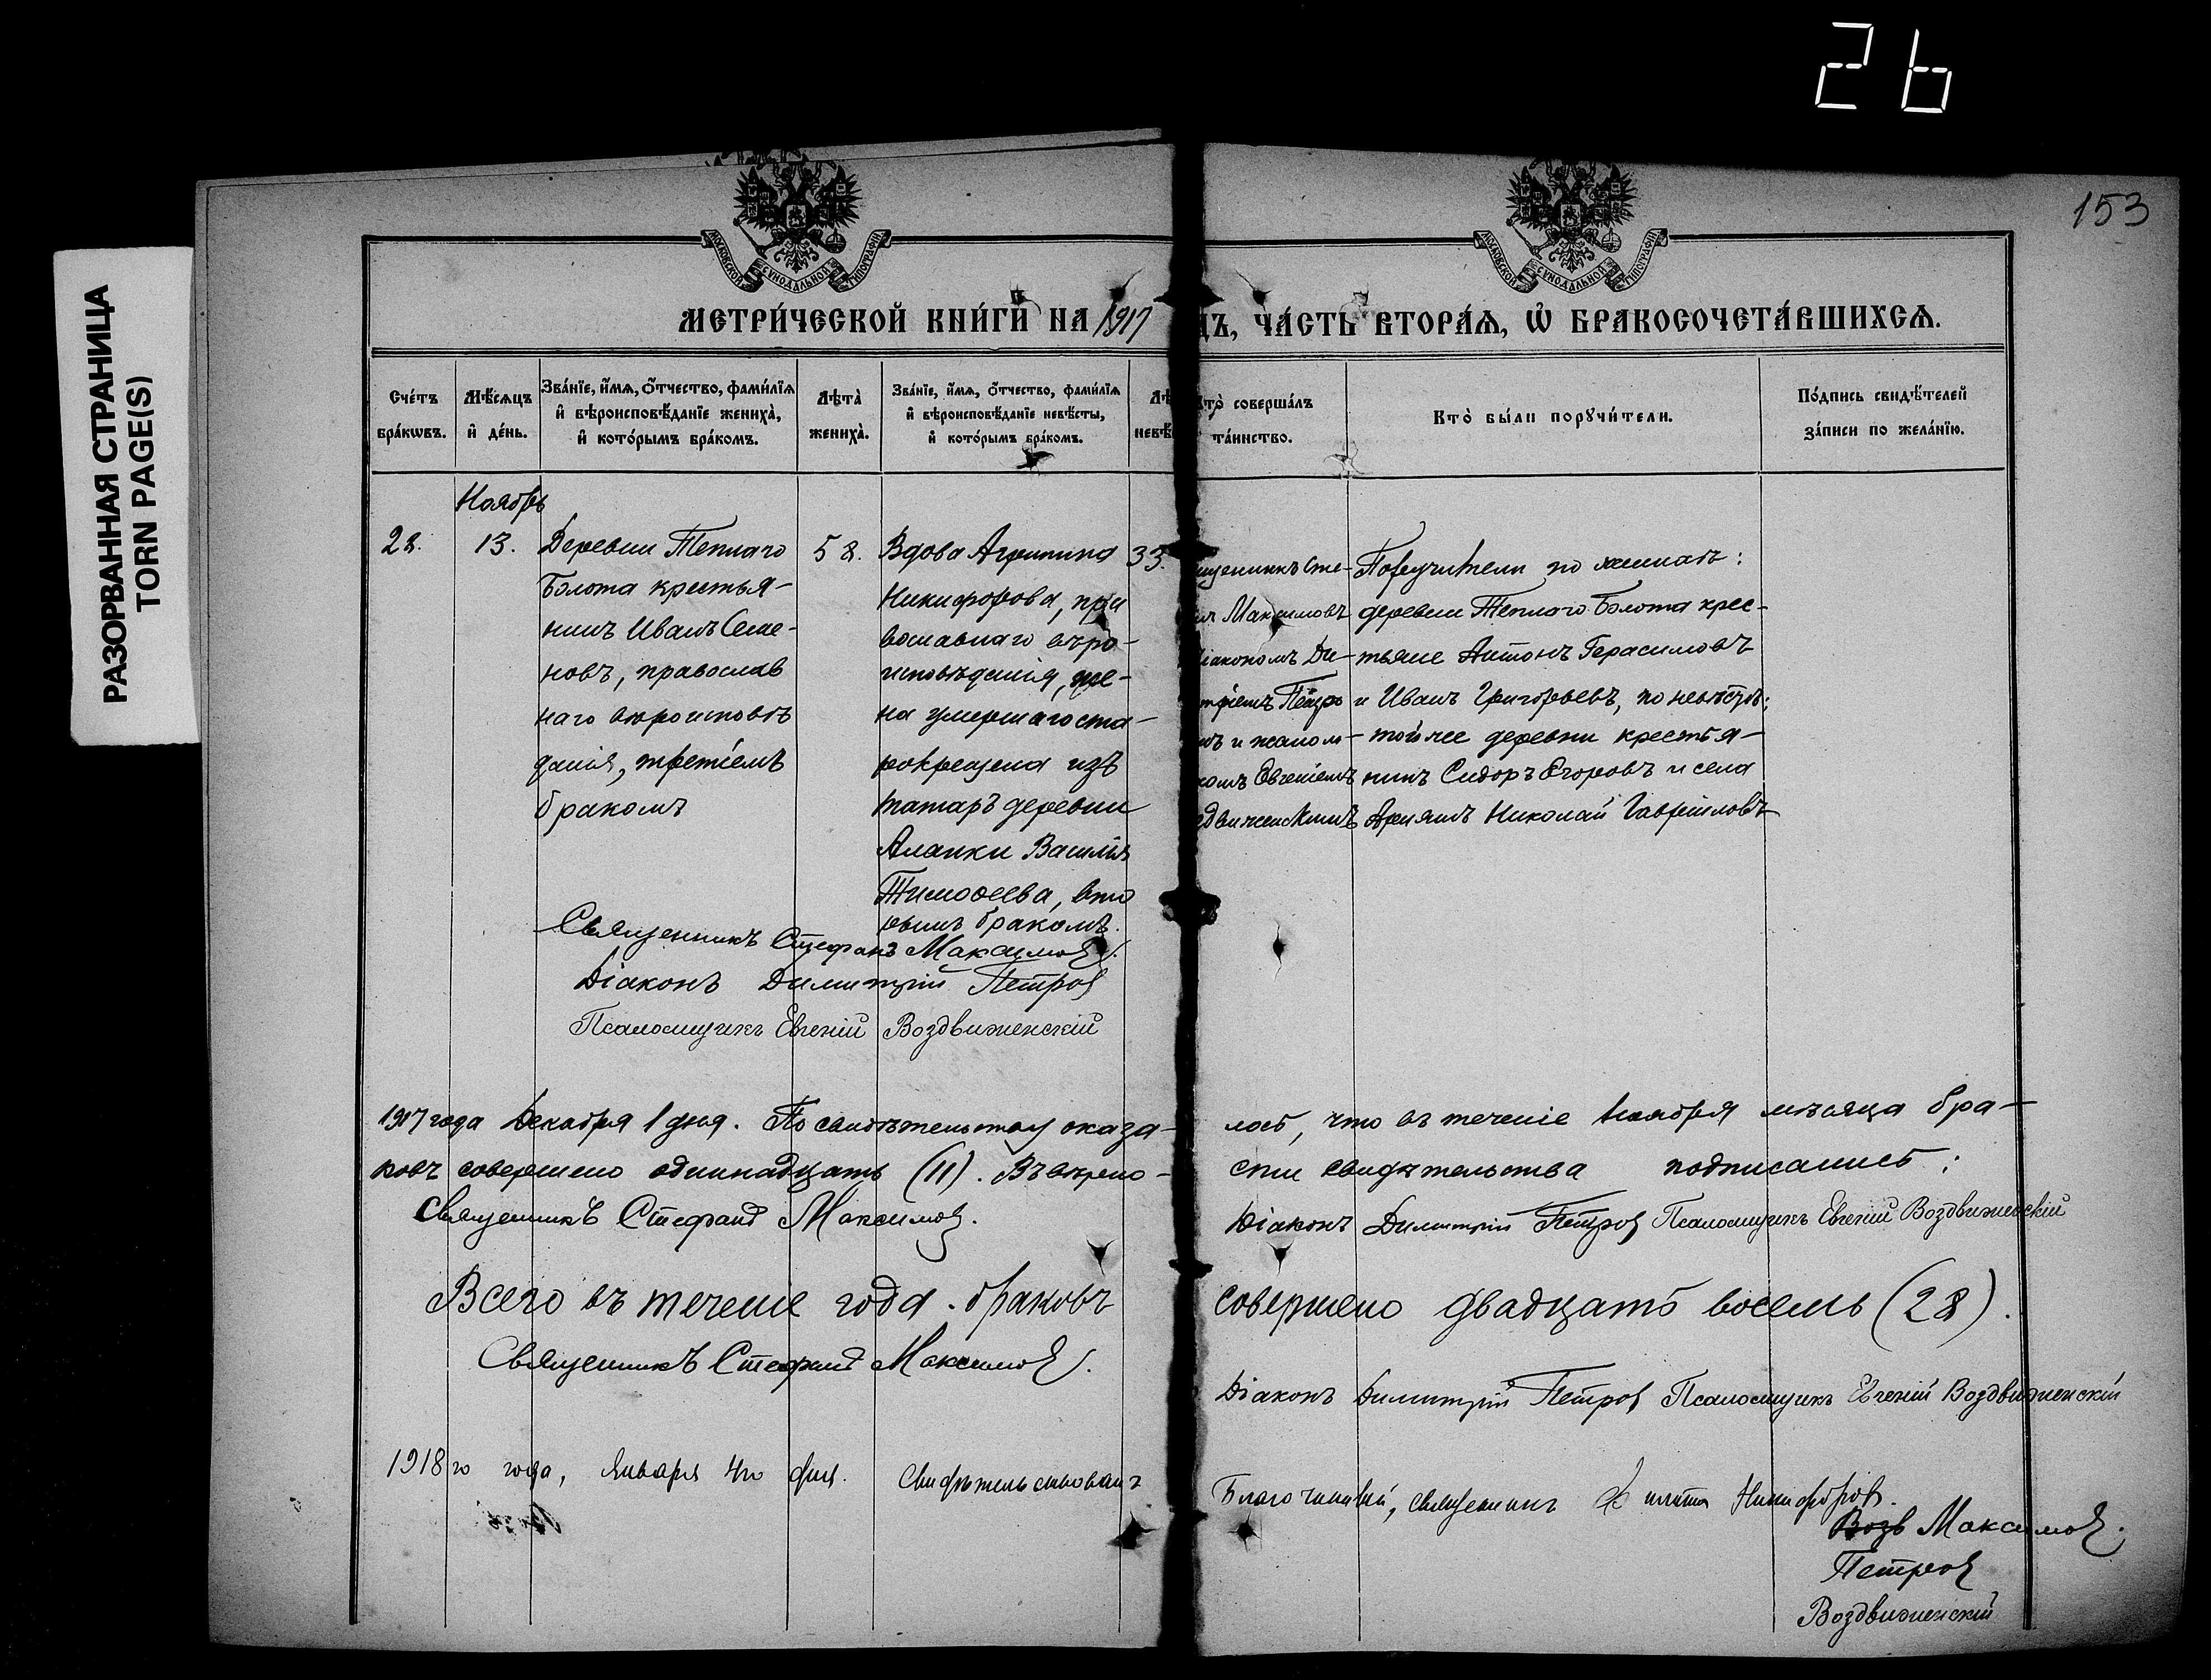 26
153
РАЗОРВАННАЯ СТРАНИЦА
TORN PAGE(S)
МОСКОВСКОЙ СѴНОДАЛЬНОЙ ТИПОГРАФІИ
МОСКОВСКОЙ СѴНОДАЛЬНОЙ ТИПОГРАФІИ
МЕТРИ́ЧЕСКОЙ КНИ́ГИ НА 1917
ДЪ, ЧА́СТЬ ВТОРА́Ѧ, Ѡ БРАКОСОЧЕТА́ВШИХСѦ.
Сче́тъ бра́кѡвъ.
Мѣ́сѧцъ и҆ де́нь.
Зва́нїе, и҆́мѧ, ѻ҆́тчество, фами́лїѧ
и҆ вѣроисповѣ́данїе жениха̀,
и҆ кото́рымъ бра́комъ.
Лѣта̀ жениха̀.
Зва́нїе, и҆́мѧ, ѻ҆́тчество, фами́лїѧ
и҆ вѣроисповѣ́данїе невѣ́сты,
и҆ кото́рымъ бра́комъ.
Лѣ
невѣ́
кто̀ соверша́лъ
та́инство.
Кто̀ бы́ли порꙋчи́тели.
По́дпись свидѣ́телей
за́писи по жела́нїю.
Ноябрь
28.
13.
Деревни Теплаго
Болота крестья-
нинъ Иванъ Семе-
новъ, православ
наго вѣроисповѣ
данія, третіемъ
бракомъ
58.
Вдова Агриппина
Никифорова, пра
вославнаго вѣро-
исповѣданія, же-
на умершаго ста-
рокрещена изъ
татаръ деревни
Аланки Василія
Тимоѳеева, вто
рымъ бракомъ.
33.
щенникъ Сте-
нъ Максимовъ
діакономъ Ди-
митріемъ Петро
мъ и псалом-
комъ Евгеніемъ
здвиженскимъ
Поручители по женихѣ:
деревни Теплаго Болота крес-
тьяне Антонъ Герасимовъ
и Иванъ Григорьевъ, по невѣстѣ:
той же деревни крестья-
нинъ Сидоръ Егоровъ и села
Николай Гавриловъ
Священникъ Стефанъ Максимовъ.
Діаконъ Димитрій Петровъ
Псаломщикъ Евгеній Воздвиженскій
1917 года Декабря 1 дня. По свидѣтельству оказа-
лось, что въ теченіе Ноября мѣсяца бра-
ковъ совершено одиннадцать (11). Въ вѣрно-
сти свидѣтельства подписались:
Священникъ Стефанъ Максимовъ.
Діаконъ Димитрій Петровъ Псаломщикъ Евгеній Воздвиженскій
Всего въ теченіе года браковъ
совершено двадцать восемь (28).
Священникъ Стефанъ Максимовъ.
Діаконъ Димитрій Петровъ Псаломщикъ Евгеній Воздвиженскій
1918 го года, Января 4го дня. Свидѣтельствовалъ
Благочинный, священникъ Никифоровъ.
Возв Максимовъ.
Петровъ
Воздвиженскій